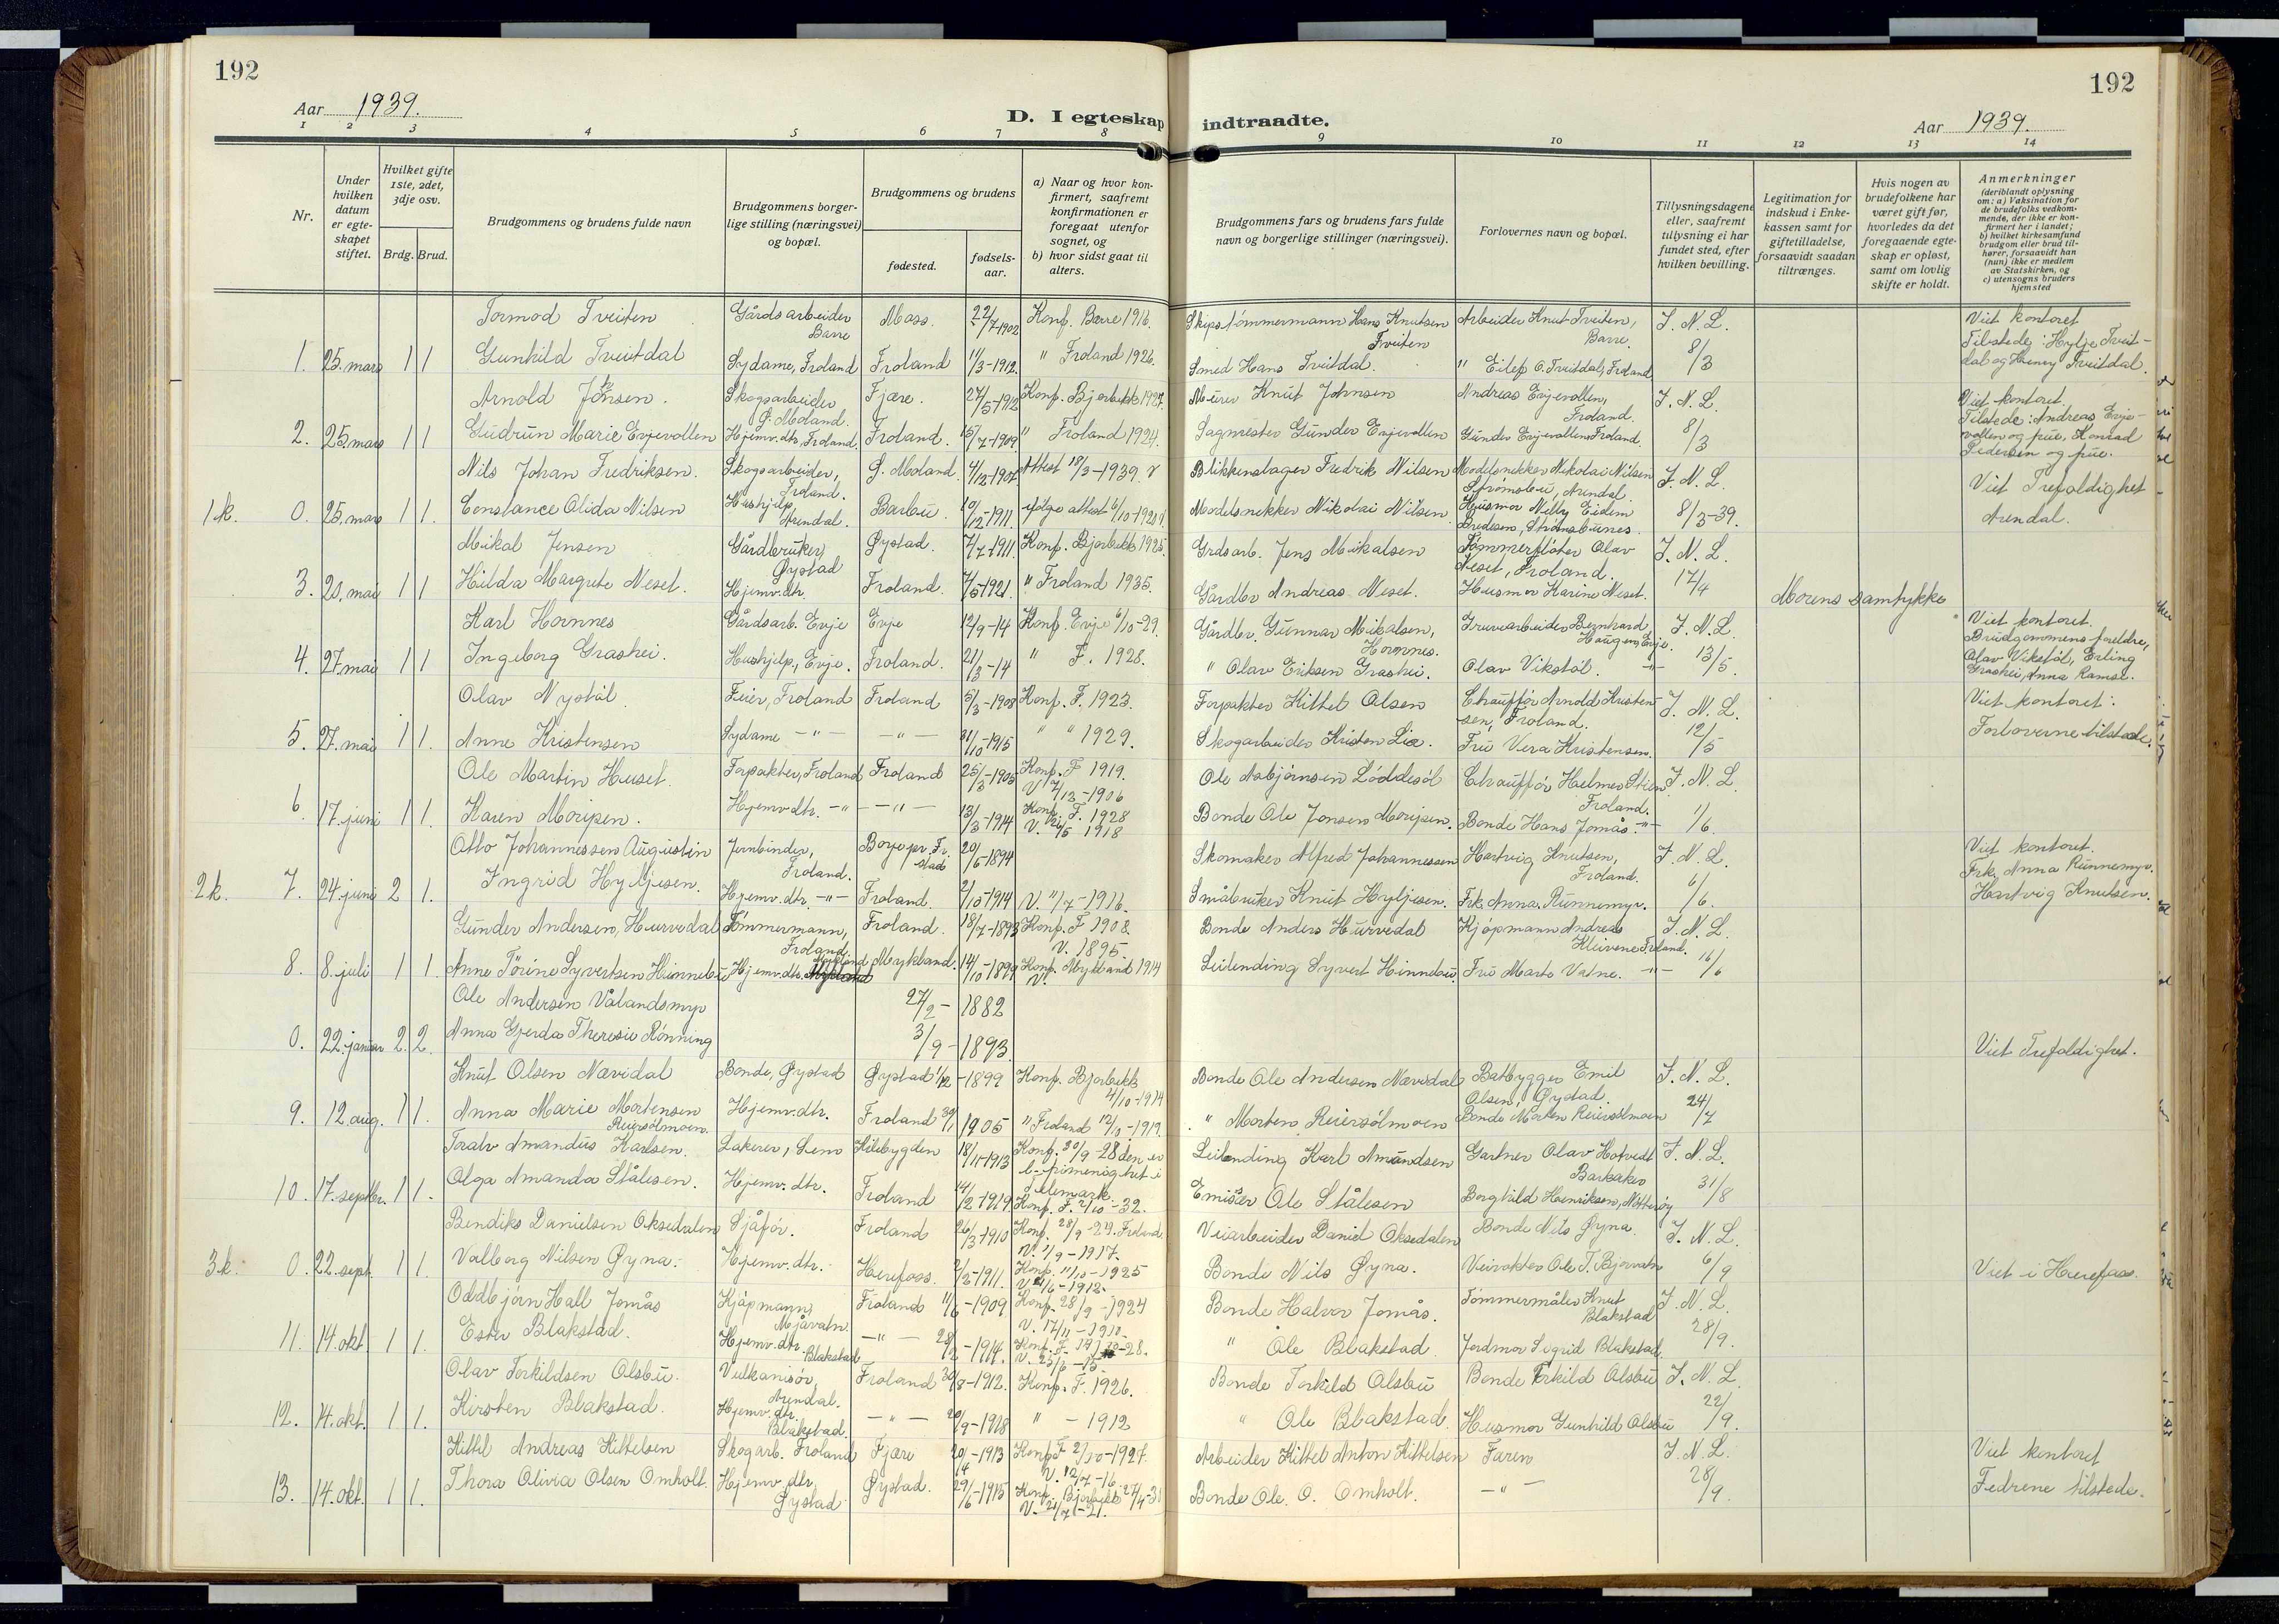 192
192
Aar 1939.
D. I egteskap indtraadte.
Aar 1939.
1 2 3 4 5 6 7 8 9 10 11 12 13 14
Nr.
Under hvilken datum er egteskapet stiftet.
Hvilket gifte 1ste, 2det, 3dje osv.
Brdg. Brud.
Brudgommens og brudens fulde navn
Brudgommens borgerlige stilling (næringsvei) og bopæl.
Brudgommens og brudens
fødested.
fødselsaar.
a) Naar og hvor konfirmert, saafremt konfirmationen er foregaat utenfor sognet, og
b) hvor sidst gaat til alters.
Brudgommens fars og brudens fars fulde navn og borgerlige stillinger (næringsvei).
Forlovernes navn og bopæl.
Tillysningsdagene eller, saafremt tillysning ei har fundet sted, efter hvilken bevilling.
Legitimation for indskud i Enkekassen samt for giftetilladelse, forsaavidt saadan tiltrænges.
Hvis nogen av brudefolkene har været gift før, hvorledes da det foregaaende egteskap er opløst, samt om lovlig skifte er holdt.
Anmerkninger
(deriblandt oplysning om: a) Vaksination for de brudefolks vedkommende, der ikke er konfirmert her i landet; b) hvilket kirkesamfund brudgom eller brud tilhører, forsaavidt han (hun) ikke er medlem av Statskirken, og c) utensogns bruders hjemsted
Tormod Tveiten Gårdsarbeider Barre Moss. 22/7-1902 Konf. Barre 1916. Skipstømmermann Hans Knutsen Tveiten Arbeider Knut Tveiten, Barre. J. N. L. Viet kontoret
1. 25. mars 1 1 Gunhild Tveitdal Sydame, Froland Froland 11/3-1912. " Froland 1926. Smed Hans Tveitdal. " Eilef O. Tveitdal, Froland 8/3 Tilstede: Hylje Tveitdal og Henry Tveitdal.
Arnold Jonsen. Skogsarbeider Ø. Moland. Fjære. 27/5-1912 Konf. Bjorbekk 1927. Murer Knut Johnsen Andreas Evjevollen, Froland. J. N. L. Viet kontoret.
2. 25. mars 1 1 Gudrun Marie Evjevollen Hjemv. dtr, Froland. Froland. 15/7-1909 " Froland 1924. Sagmester Gunder Evjevollen Gunder Evjevollen Froland. 8/3 Tilstede: Andreas Evjevollen og frue, Konrad Pedersen og frue.
Nils Johan Fredriksen. Skogsarbeider, Froland. Ø. Moland. 4/12-1907 Attest 18/3-1939. Blikkenslager Fredrik Nilsen Modelsnekker Nikolai Nilsen Strømsbu, Arendal. J. N. L. Viet Trefoldighet
1 k. 0. 25. mars 1 1. Constance Olida Nilsen Hushjelp, Arendal. Barbu. 10/12-1911. ifølge attest 6/10-192 Modelsnekker Nikolai Nilsen Husmor Nelly Eidem Bredesen, Strømsbunes. 8/3-39. Arendal.
Mikal Jensen Gårdbruker, Øystad Øystad. 7/7-1911 Konf. Bjorbekk 1925. Grdsarb. Jens Mikalsen Tømmerfløter Olav Neset, Froland. J. N. L.
3. 20. mai 1 1 Hilda Margrete Neset. Hjemv. dtr. Froland. 7/5-1921. " Froland 1935. Gårdbr Andreas Neset. Husmor Karine Neset. 17/4 Morens samtykke
Karl Hornnes Gårdsarb. Evje Evje 12/9-14 Konf. Evje 6/10-29. Gårdbr. Gunnar Mikalsen, Hornnes. Gruvearbeider Bernhard Haugen, Evje. J. N. L. Viet kontoret.
4. 27. mai 1 1 Ingeborg Grashei. Hushjelp, Evje. Froland. 21/3-14 " F. 1928. " Olav Eriksen Grashei. Olav Vikstøl. -"- 13/5. Brudgommens foreldre, Olav Vikstøl, Erling Grashei, Anna Ramse.
Olav Nystøl Feier, Froland Froland 5/3-1908 Konf. F. 1923. Forpakter Kittel Olsen Chauffør Arnold Kristensen, Froland. J. N. L. Viet kontoret:
5. 27. mai 1 1. Anne Kristensen Sydame -"- -"- 21/10-1915 " " 1929. Skogarbeider Kristen Lia. Fru Vera Kristensen. 12/5 Forloverne tilstede.
Ole Martin Huset. Forpakter, Froland Froland 25/3-1905 Konf. F 1919. V. 7/12-1906 Ole Asbjørnsen Løddesøl Chauffør Helmer Stien Froland. J. N. L.
6. 17. juni 1 1. Karen Moripen. Hjemv dtr. -"- -"- 13/3-1914 Konf. F. 1928 V. 26/5 1918 Bonde Ole Jensen Moripen. Bonde Hans Jomås. -"- 1/6.
Otto Johannessen Augustin Jernbinder, Froland. Borge pr. Fr. stad 20/6-1894 Skomaker Alfred Johannessen Hartvig Knutsen, Froland. J. N. L. Viet kontoret.
2 k. 7. 24. juni 2 1. Ingrid Hyljesen. Hjemv. dtr. -"- Froland. 2/10-1914 V. 11/7-1916. Småbruker Knut Hyljesen. Frk. Anna Runnemyr. 6/6. Frk. Anna Runnemyr. Hartvig Knutsen.
Gunder Andersen, Hurvedal Tømmermann, Froland Froland. 18/7-1893 Konf. F 1908. V. 1895. Bonde Anders Hurvedal Kjøpmann Andreas Kleivene Froland. J. N. L.
8. 8. juli 1 1. Anne Tørine Syvertsen Hinnebu Hjemv. dtr. Mykland Mykland. 14/10-1899 Konf. Mykland 1914 V. Leilending Syvert Hinnebu. Fru Marto Vatne. -"- 16/6
Ole Andersen Vålandsmyr 27/2- 1882
0. 22. januar 2. 2. Anna Gjerda Theresie Rønning 3/9- 1893. Viet Trefoldighet.
Knut Olsen Nævidal Bonde, Øystad Øystad 1/12-1899 Konf. Bjorbekk 4/10-1914 Bonde Ole Andersen Nævedal Båtbygger Emil Olsen, Øystad. J. N. L.
9. 12. aug. 1 1. Anna Marie Mortensen Reiersølmoen. Hjemv. dtr. Froland 30/1 1905 " Froland 12/10-1919. " Morten Reiersølmoen Bonde Morten Reiersølmoen 24/7
Tralv Amandus Karlsen. Lakerer, Sem Hillebygden 18/11-1913 Konf. 30/9-28 den ev. l. frimenighet i Telemark. Leilending Karl Amundsen Gartner Olav Hotvedt Barkaker J. N. L.
10. 17. septbr. 1 1. Olga Amanda Stålesen. Hjemv. dtr. Froland 14/2-1919 Konf. F. 2/10-32. Emissær Ole Stålesen Borghild Henriksen, Nøtterøy 31/8
Bendiks Danielsen Oksedalen Sjåfør. Froland 26/3-1910 Konf. 28/9-24. Froland V. 1/9-1917. Veiarbeider Daniel Oksedalen Bonde Nils Øyna. J. N. L.
3 k. 0. 22. sept. 1 1. Valborg Nilsen Øyna. Hjemv. dtr. Herefoss. 2/2-1911. Konf. 11/10-1925 V. 4/6-1912. Bonde Nils Øyna. Veivokter Ole T. Bjorvatn 6/9 Viet i Herefoss.
Oddbjørn Hall Jomås Kjøpmann, Mjåvatn Froland 11/6-1909 Konf. 28/9-1924 V. 17/11-1910. Bonde Halvor Jomås. Tømmermåler Knut Blakstad J. N. L.
11. 14. okt. 1 1. Ester Blakstad. Hjemv. dtr. Blakstad -"- 28/2-1914. Konf. F. 14/10-28. V. 25/6-15. " Ole Blakstad Jordmor Sigrid Blakstad 28/9.
Olav Terkildsen Olsbu. Vulkanisør, Arendal. Froland 30/8-1912. Konf. F. 1926. Bonde Terkild Olsbu Bonde Terkild Olsbu J. N. L.
12. 14. okt. 1 1. Kirsten Blakstad. Hjemv. dtr. Blakstad. -"- 20/9-1918 " - 1912 " Ole Blakstad. Husmor Gunhild Olsbu 22/9.
Kittel Andreas Kittelsen Skogarb. Froland Fjære 20/14-1913 Konf. F 2/10-1927. V. 12/7-16 Arbeider Kittel Anton Kittelsen Faren J. N. L. Viet kontoret
13. 14. okt. 1 1. Thora Olivia Olsen Omholt. Hjemv dtr. Øystad Øystad. 29/6-1915 Konf. Bjorbekk 27/4-3 V. 21/7-21. Bonde Ole. O. Omholt. -"- 28/9. Fedrene tilstede.